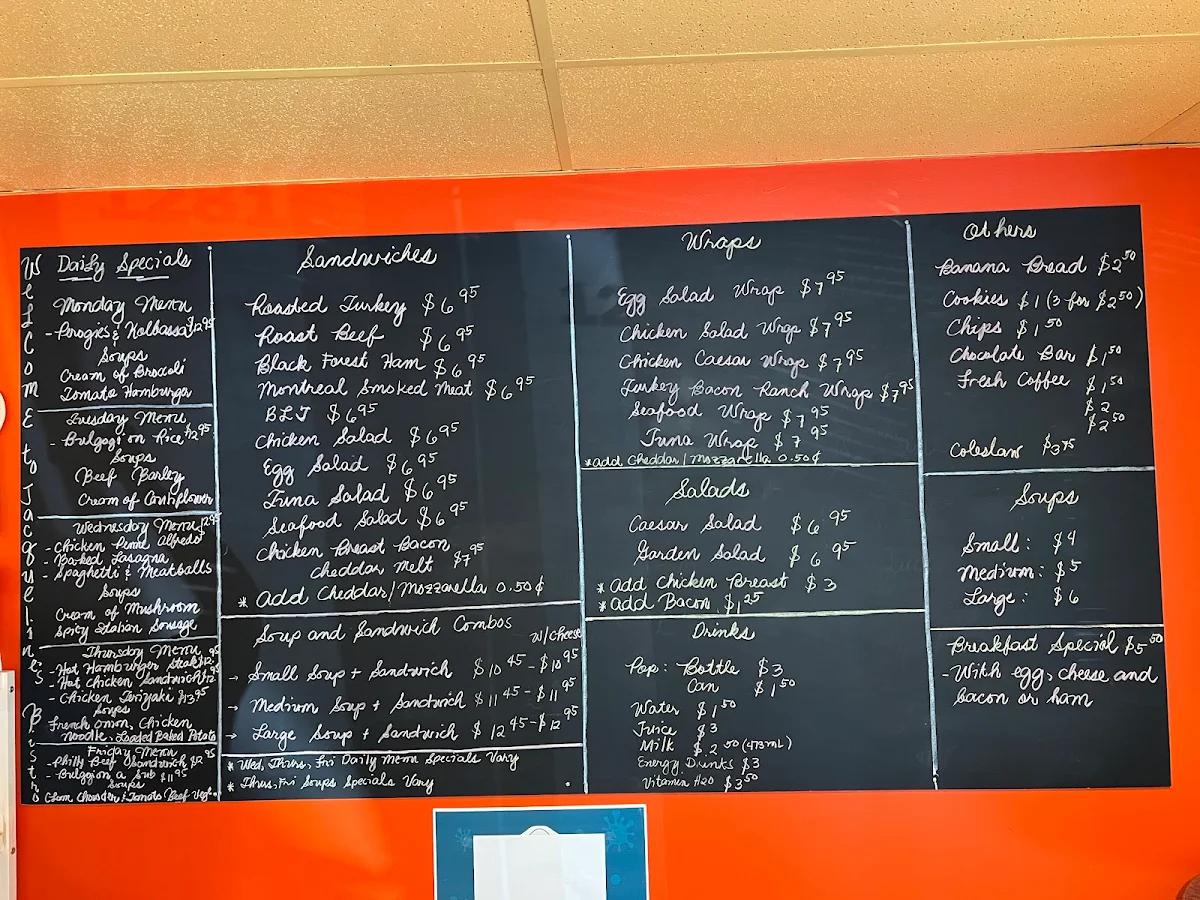 Wellcome to Jacqueline's Bistro
Daily Specials
Monday Menu
- Perogies & Kolbassa $12.95
Soups
Cream of Brocoli
Tomato Hamburger
Tuesday Menu
- Bulgogi on Rice $12.95
Soups
Beef Barley
Cream of Cauliflower
Wednesday Menu $12.95
- Chicken Penne Alfredo
- Baked Lasagna
- Spaghetti & Meatballs
Soups
Cream of Mushroom
Spicy Italian Sausage
Thursday Menu
- Hot Hamburger Steak $12.95
- Hot Chicken Sandwich $12.95
- Chicken Teriyaki $13.95
Soups
French Onion, Chicken
Noodle, Loaded Baked Potato
Friday Menu
- Philly Beef Sandwich $12.95
- Bulggion a Sub $11.95
Soups
Clam Chowder & Tomato Beef Veg.
Sandwiches
Roasted Turkey $6.95
Roast Beef $6.95
Black Forest Ham $6.95
Montreal Smoked Meat $6.95
BLT $6.95
Chicken Salad $6.95
Egg Salad $6.95
Tuna Salad $6.95
Seafood Salad $6.95
Chicken Breast Bacon
Cheddar Melt $7.95
* Add Cheddar/Mozzarella 0.50¢
Soup and Sandwich Combos
w/cheese
→ Small Soup + Sandwich $10.45 - $10.95
→ Medium Soup + Sandwich $11.45 - $11.95
→ Large Soup + Sandwich $12.45 - $12.95
* Wed, Thurs, Fri Daily Menu Specials Vary
* Thurs, Fri Soups Specials Vary
Wraps
Egg Salad Wrap $7.95
Chicken Salad Wrap $7.95
Chicken Caesar Wrap $7.95
Turkey Bacon Ranch Wrap $7.95
Seafood Wrap $7.95
Tuna Wrap $7.95
*add Cheddar/Mozzarella 0.50¢
Salads
Caesar Salad $6.95
Garden Salad $6.95
* add Chicken Breast $3
* add Bacon $1.25
Drinks
Pop: Bottle $3
Can $1.50
Water $1.50
Juice $3
Milk $2.50 (473mL)
Energy Drinks $3
Vitamin H20 $3.50
Others
Banana Bread $2.50
Cookies $1 (3 for $2.50)
Chips $1.50
Chocolate Bar $1.50
Fresh Coffee $1.50
$2
$2.50
Coleslaw $3.75
Soups
Small: $4
Medium: $5
Large: $6
Breakfast Special $5.50
- With egg, cheese and
bacon or ham